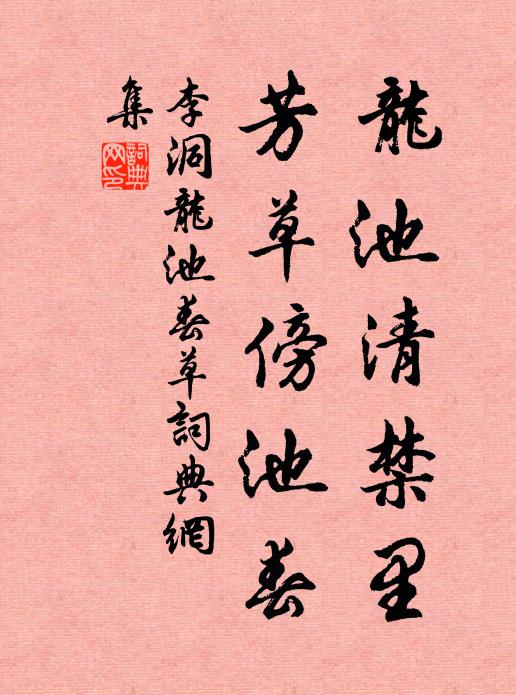 龍池清禁里
芳草傍池春
李洞龍池春草詞典網
集
詞典
网印